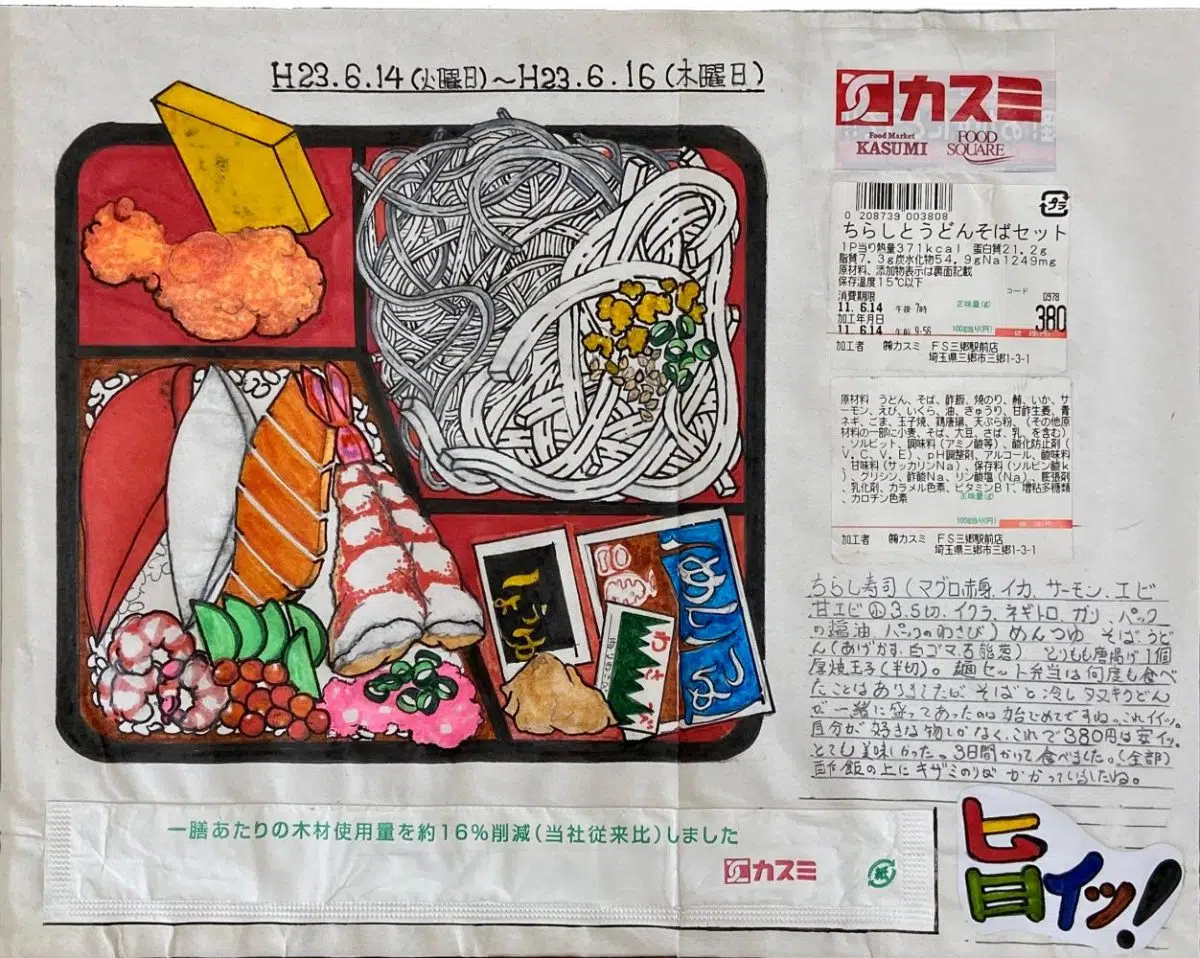 H23.6.14(火曜日)〜H23.6.16(木曜日)
カスミ
Food Market
KASUMI
FOOD
SQUARE
0 208739 003808
プラ
ちらしとうどんそばセット
1P当り熱量371kcal 蛋白質21.2g
脂質7.3g炭水化物54.9gNa1249mg
原材料、添加物表示は裏面記載
保存温度15℃以下
コード
消費期限
0978
11.6.14 午後 7時
正味量(g)
加工年月日
380
11.6.14 午前 9-56
100g当り(円)
加工者 ㈱カスミ FS三郷駅前店
埼玉県三郷市三郷1-3-1
原材料 うどん、そば、酢飯、焼のり、鮪、いか、サ
ーモン、えび、いくら、油、きゅうり、甘酢生姜、青
ネギ、ごま、玉子焼、鶏唐揚、天ぷら粉、(その他原
材料の一部に小麦、そば、大豆、さば、乳、を含む)
、ソルビット、調味料(アミノ酸等)、酸化防止剤(
V.C、V.E)、pH調整剤、アルコール、酸味料
、甘味料(サッカリンNa)、保存料(ソルビン酸k
)、グリシン、酢酸Na、リン酸塩(Na)、膨張剤
、乳化剤、カラメル色素、ビタミンB1、増粘多糖類
、カロチン色素
正味量(g)
100g当り(円)
加工者 ㈱カスミ FS三郷駅前店
埼玉県三郷市三郷1-3-1
しょうゆ
めんつゆ
わさび
ちらし寿司(マグロ赤身、イカ、サーモン、エビ
甘エビ㊤3.5切、イクラ、ネギトロ、ガリ、パック
の醤油、パックのわさび)めんつゆ そばうど
ん(あげかす、白ゴマ、万能葱) とりもも唐揚げ1個
厚焼玉子(半切)。麺セット弁当は何度も食べ
たことはありましたが、そばと冷しタヌキうどん
が一緒に盛ってあったのは始じめてですね。これイイッ。
自分が好きな物しかなく、これで380円は安イッ。
とても美味しかった。3日間かけて食べました。(全部)
酢飯の上にキザミのりがかかっていましたね。
一膳あたりの木材使用量を約16%削減(当社従来比)しました
カスミ
紙
旨イッ!